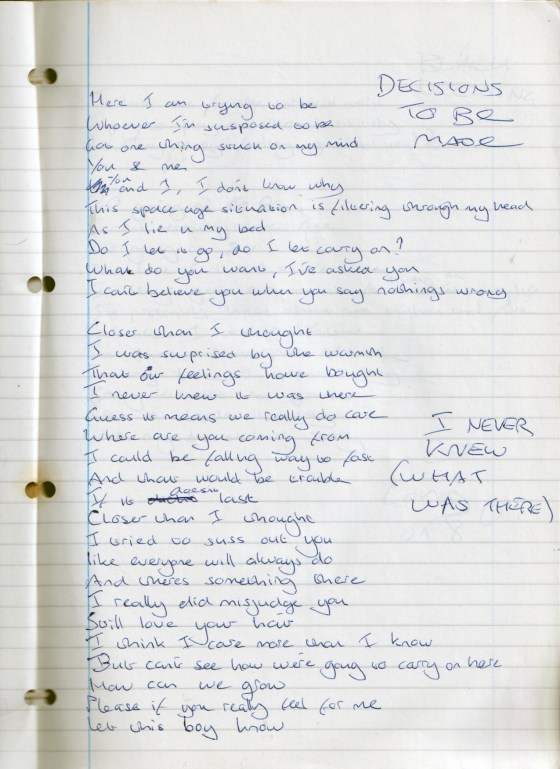 DECISIONS
TO BE
MADE
Here I am trying to be
Whoever I'm susposed to be
Got one thing stuck on my mind
You & me
You and I, I don't know why
This space age situation is filtering through my head
As I lie in my bed
Do I let it go, do I let carry on?
What do you want, I've asked you
I can't believe you when you say nothings wrong
Closer than I thought
I was surprised by the warmth
That our feelings have bought
I never knew it was there
Guess it means we really do care
Where are you coming from
I could be falling way to fast
And what would be trouble
If it doesn't last
Closer than I thought
I tried to suss out you
like everyone will always do
And theres something there
I really did misjudge you
Still love your hair
I think I care more than I know
But can't see how we're going to carry on here
How can we grow
Please if you really feel for me
Let this boy know
I NEVER
KNEW
(WHAT
WAS THERE)